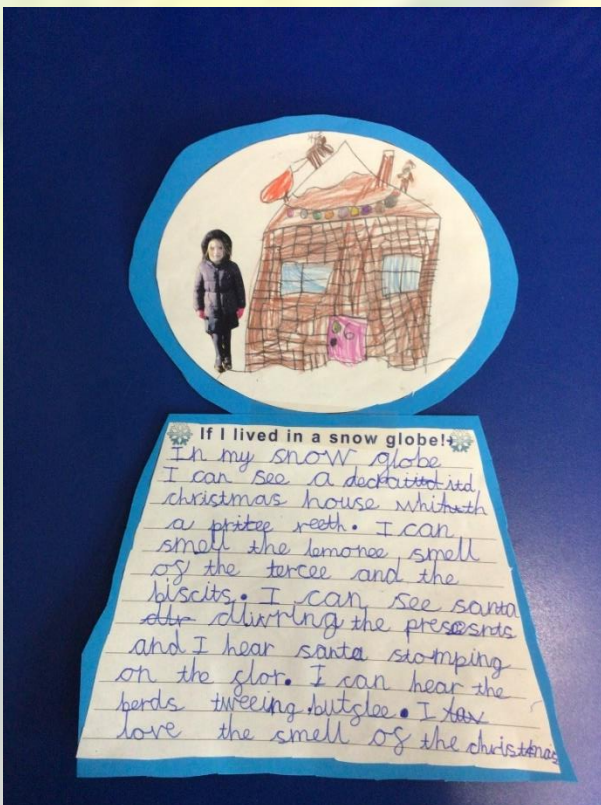 If I lived in a snow globe!
In my snow globe
I can see a decratitid
christmas house whith
a pritee reeth. I can
smell the lemonee smell
of the tercee and the
biscits. I can see santa
diuvring the presesnts
and I hear santa stomping
on the glor. I can hear the
berds tweeing butglee. I
love the smell of the christmas